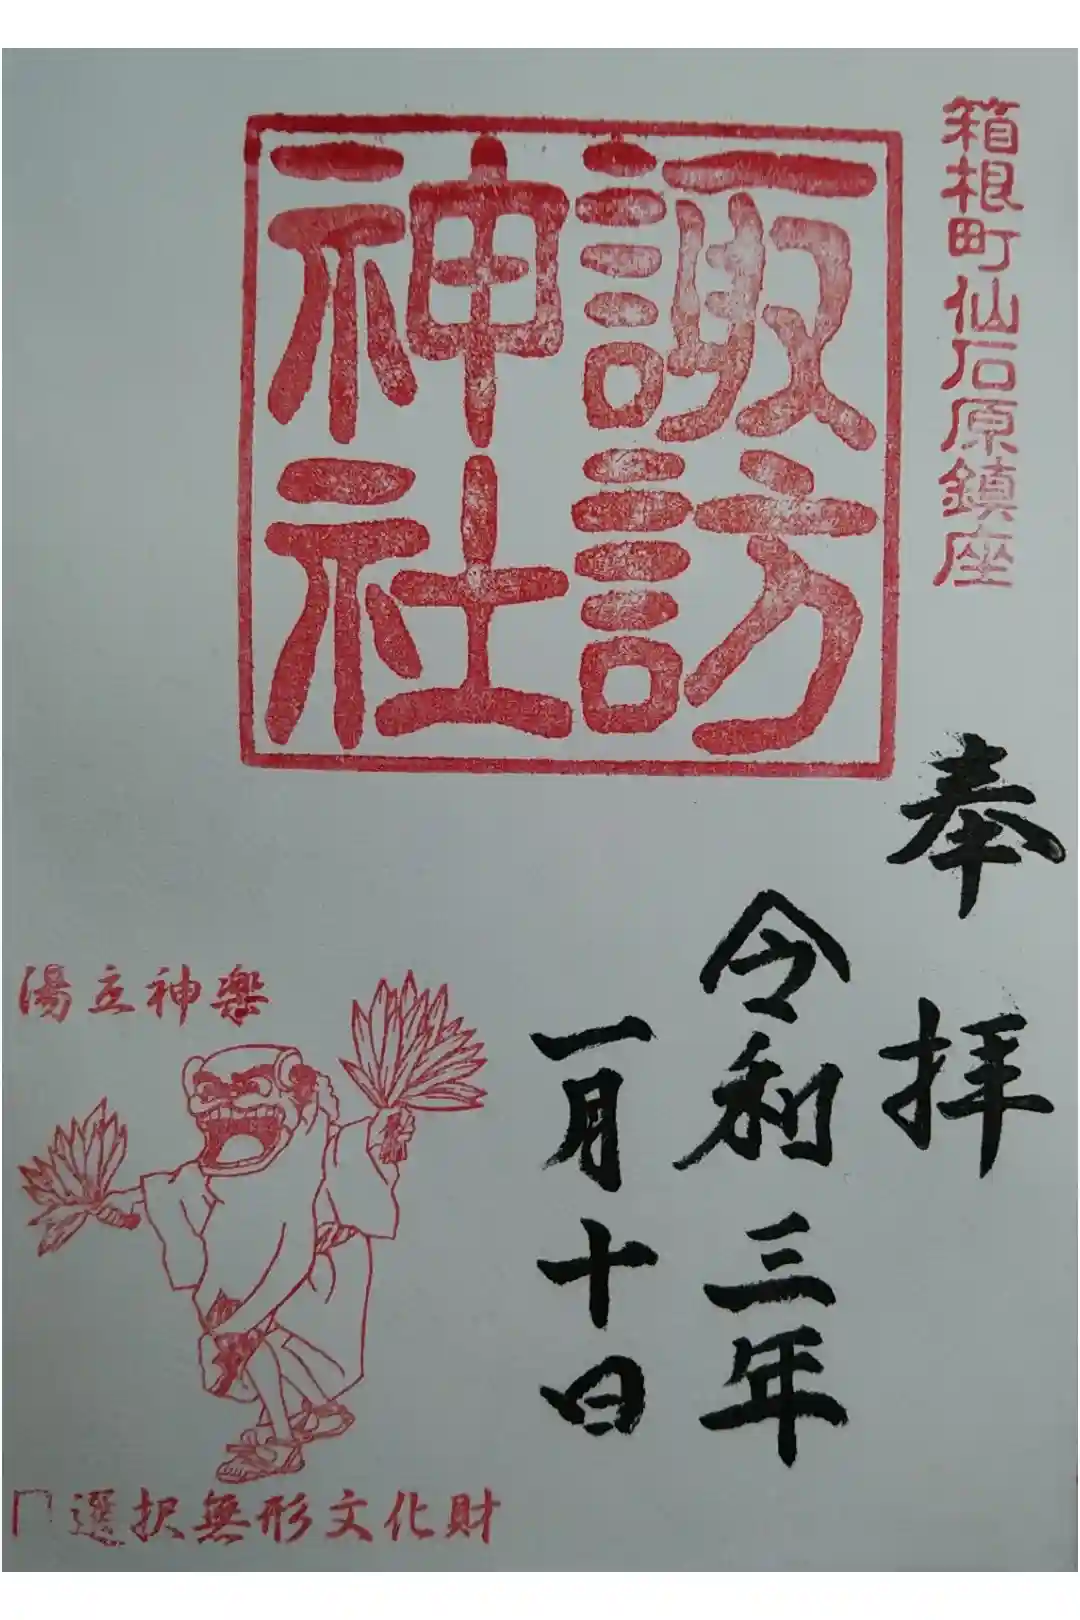 箱根町仙石原鎮座
諏訪
神社
奉拝
令和三年
一月十日
湯立神楽
選択無形文化財